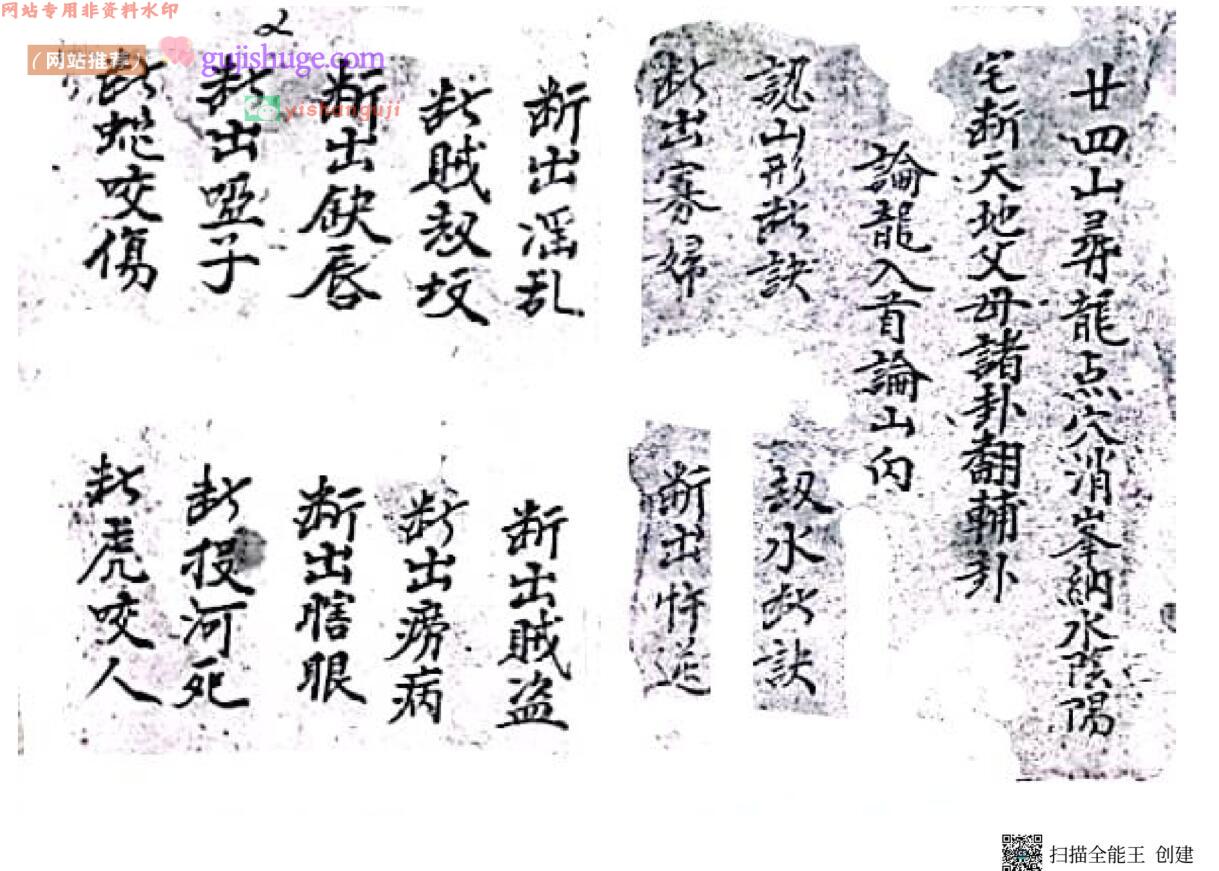 网站专用非资料水印
（网站推荐）
gujishuge.com
yishanguji
2
廿四山尋龍点穴消峯納水陰陽
宅断天地父母諸卦翻輔卦
論龍入首論山向
認山形断訣
認水断訣
断出寡婦
断出忤逆
断出淫乱
断出賊盗
断賊劫坟
断出痨病
断出缺唇
断出瞎眼
断出啞子
断投河死
断蛇咬傷
断虎咬人
扫描全能王 创建